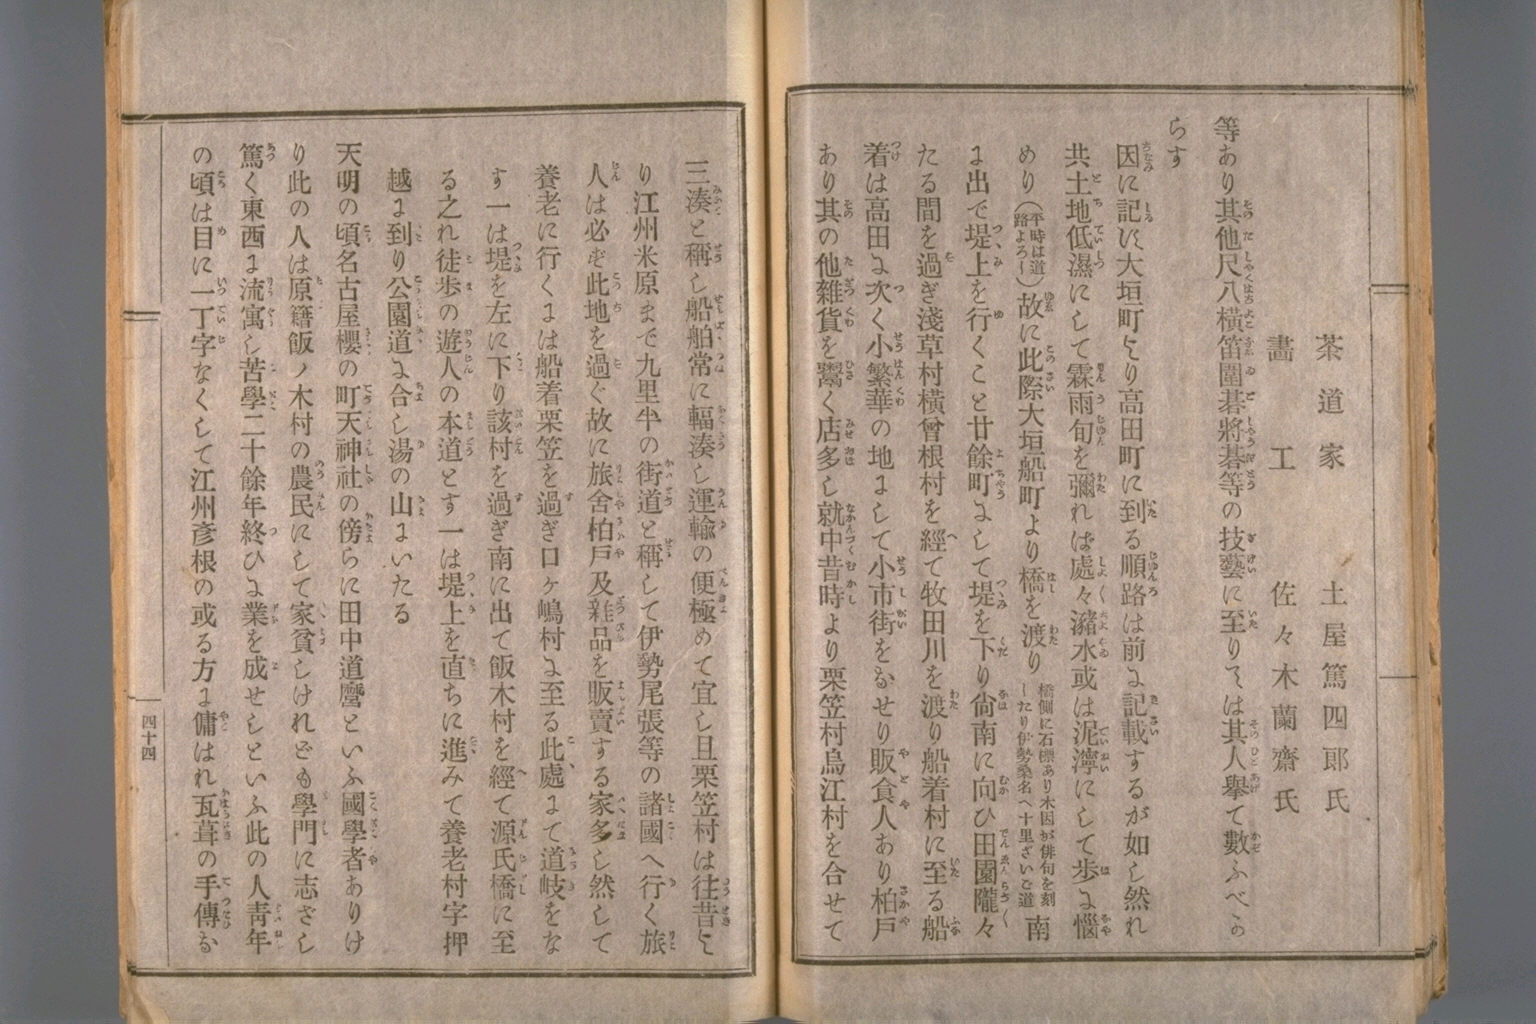 茶道家　土屋篤四郎氏
畵工　佐々木蘭齋氏
等あり其他尺八横笛圍碁將碁等の技藝に至りては其人擧て數ふべか
らす
因に記に大垣町より高田町に到る順路は前に記載するが如し然れ
共土地低濕にして霖雨旬を彌れば處々瀦水或は泥濘にして歩に惱
めり（平時は道路よろし）故に此際大垣船町より橋を渡り橋側に石標あり木因が俳句を刻したり伊勢桑名へ十里ざいご道南
に出で堤上を行くこと廿餘町にして堤を下り尙南に向ひ田園隴々
たる間を過ぎ淺草村横曾根村を經て牧田川を渡り船着村に至る船
着は高田に次く小繁華の地にして小市街をなせり販食人あり柏戸
あり其の他雜貨を鬻く店多し就中昔時より栗笠村烏江村を合せて
三湊と稱し船舶常に輻湊し運輸の便極めて宜し且栗笠村は往昔よ
り江州米原まで九里半の街道と稱して伊勢尾張等の諸國へ行く旅
人は必ず此地を過ぐ故に旅舍柏戸及雜品を販賣する家多し然して
養老に行くには船着栗笠を過ぎ口ヶ嶋村に至る此處にて道岐をな
す一は堤を左に下り該村を過ぎ南に出て飯木村を經て源氏橋に至
る之れ徒歩の遊人の本道とす一は堤上を直ちに進みて養老村字押
越に到り公園道に合し湯の山にいたる
天明の頃名古屋櫻の町天神社の傍らに田中道麿といふ國學者ありけ
り此の人は原籍飯ノ木村の農民にして家貧しけれども學門に志ざし
篤く東西に流寓し苦學二十餘年終ひに業を成せしといふ此の人靑年
の頃は目に一丁字なくして江州彥根の或る方に傭はれ瓦葺の手傳な
四十四